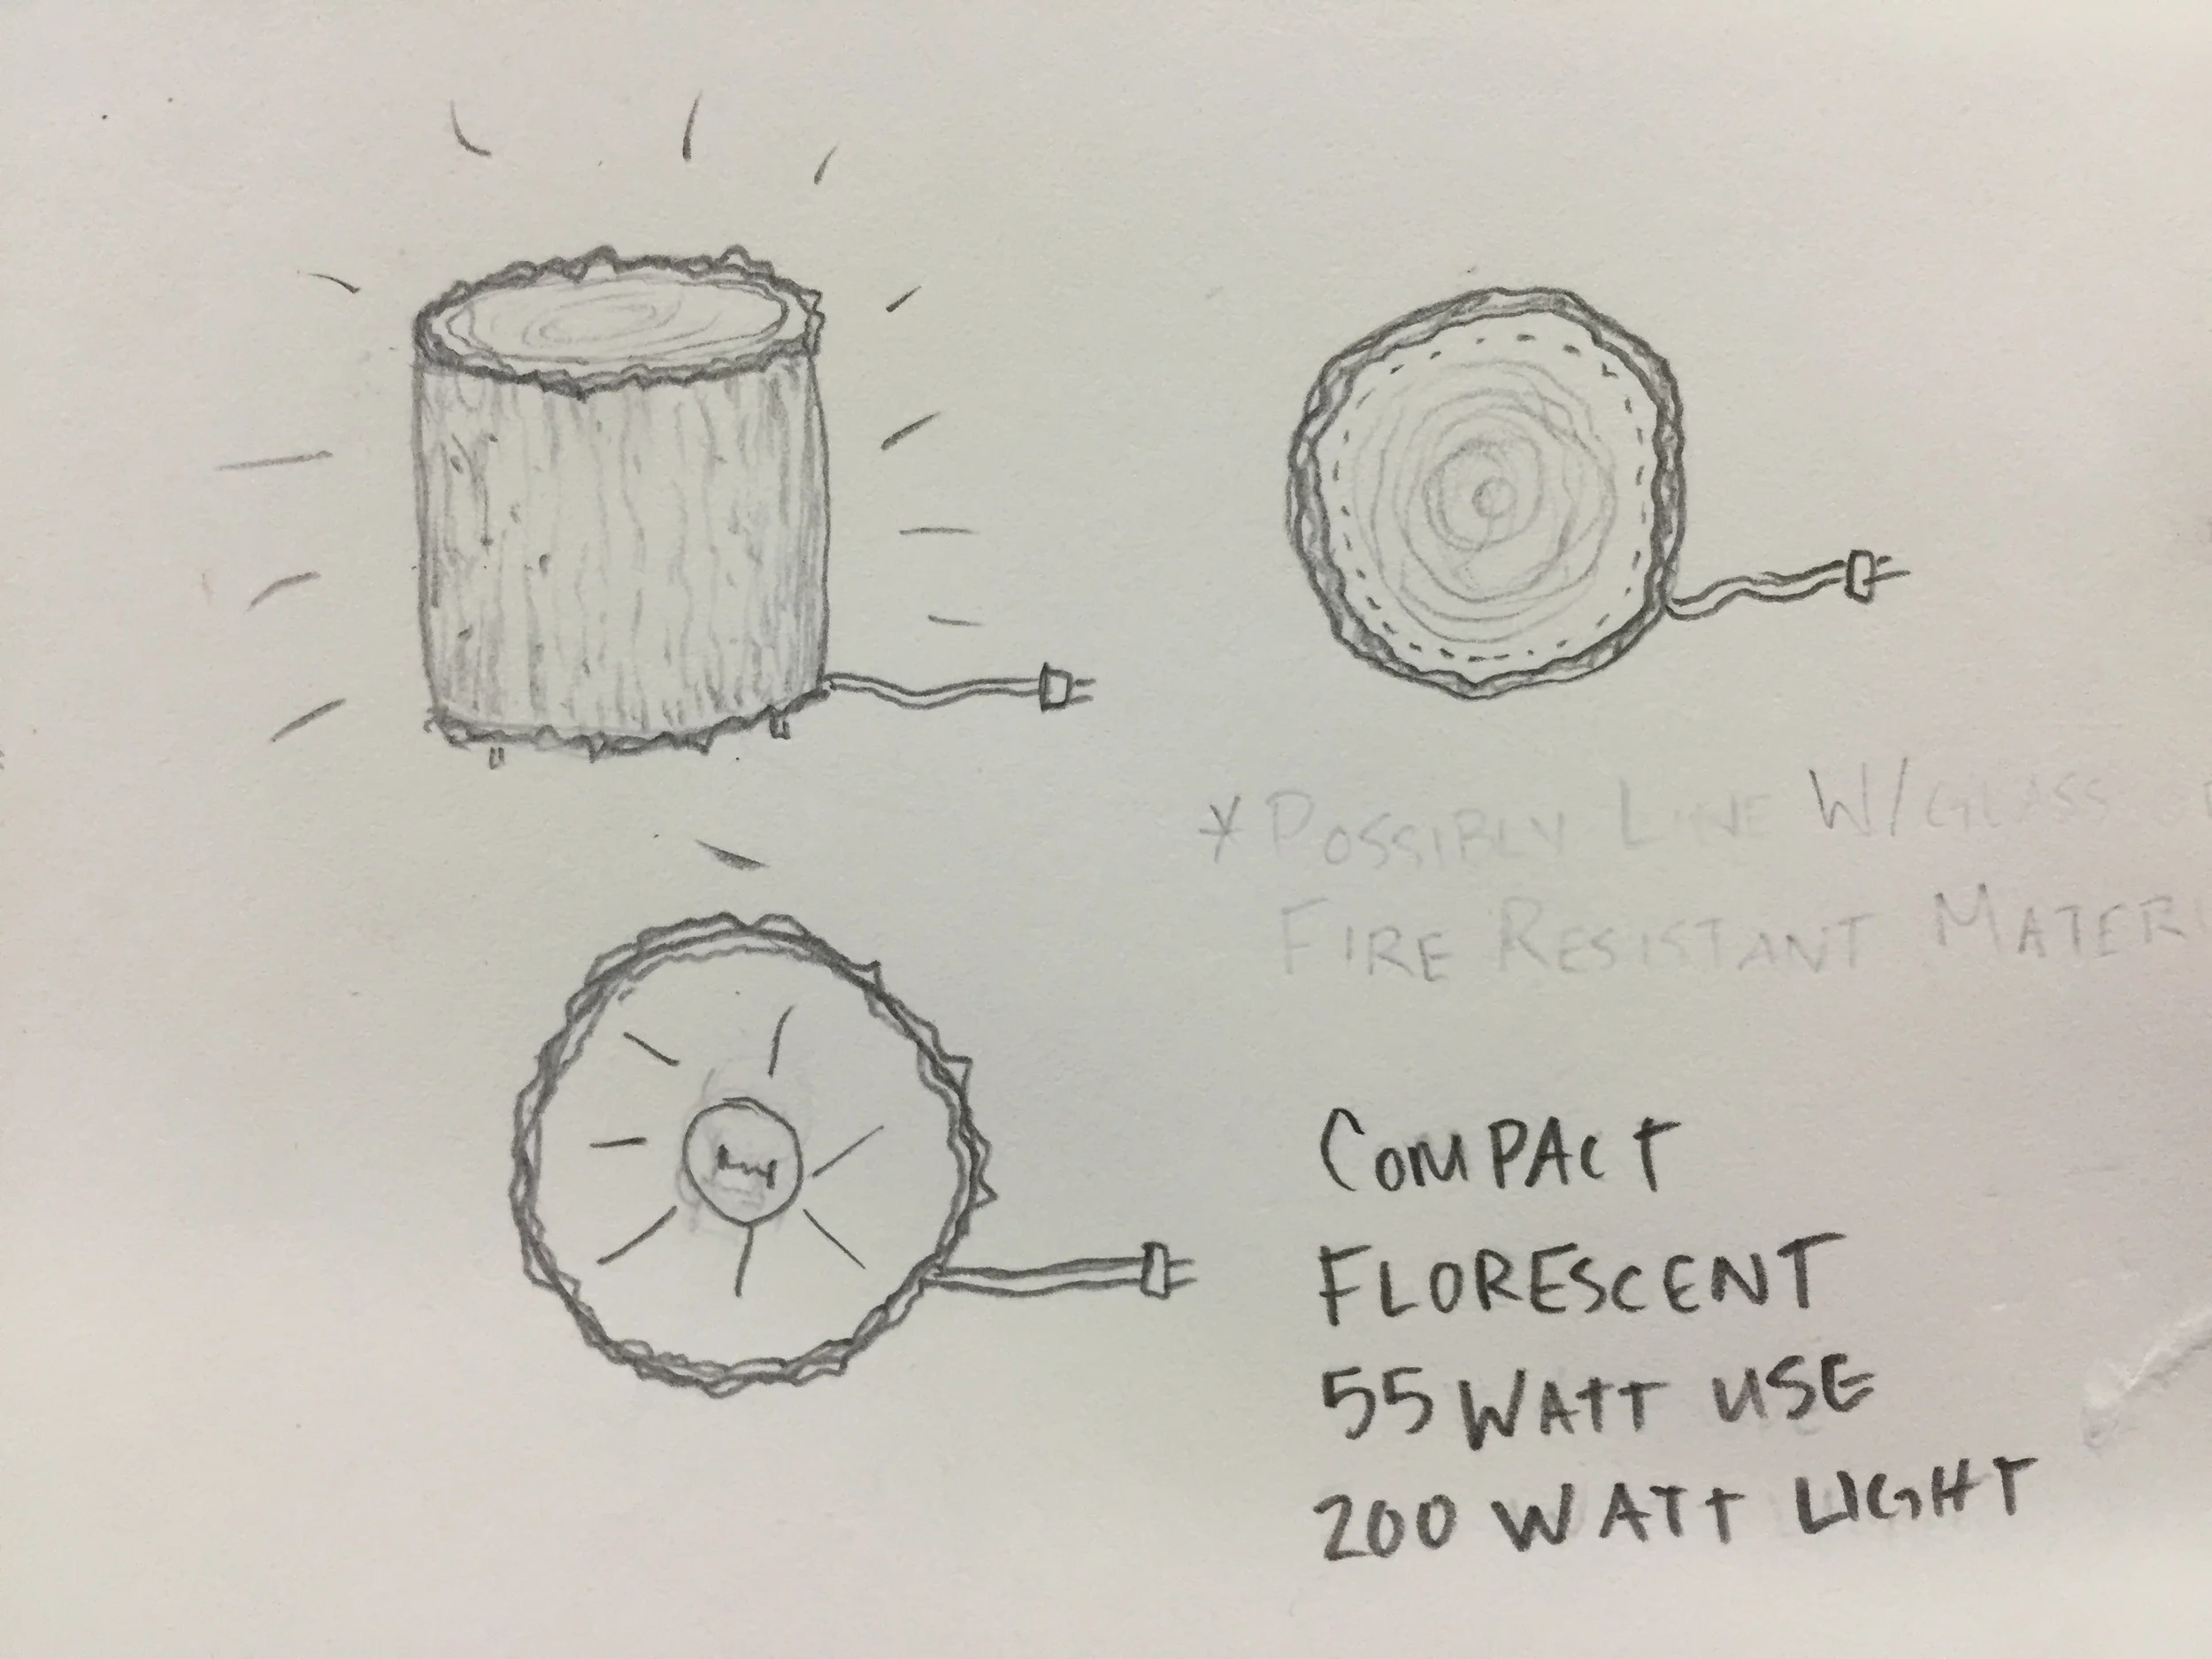 * POSSIBLY LINE W/GLASS
FIRE RESISTANT MATERI
COMPACT
FLORESCENT
55 WATT USE
200 WATT LIGHT